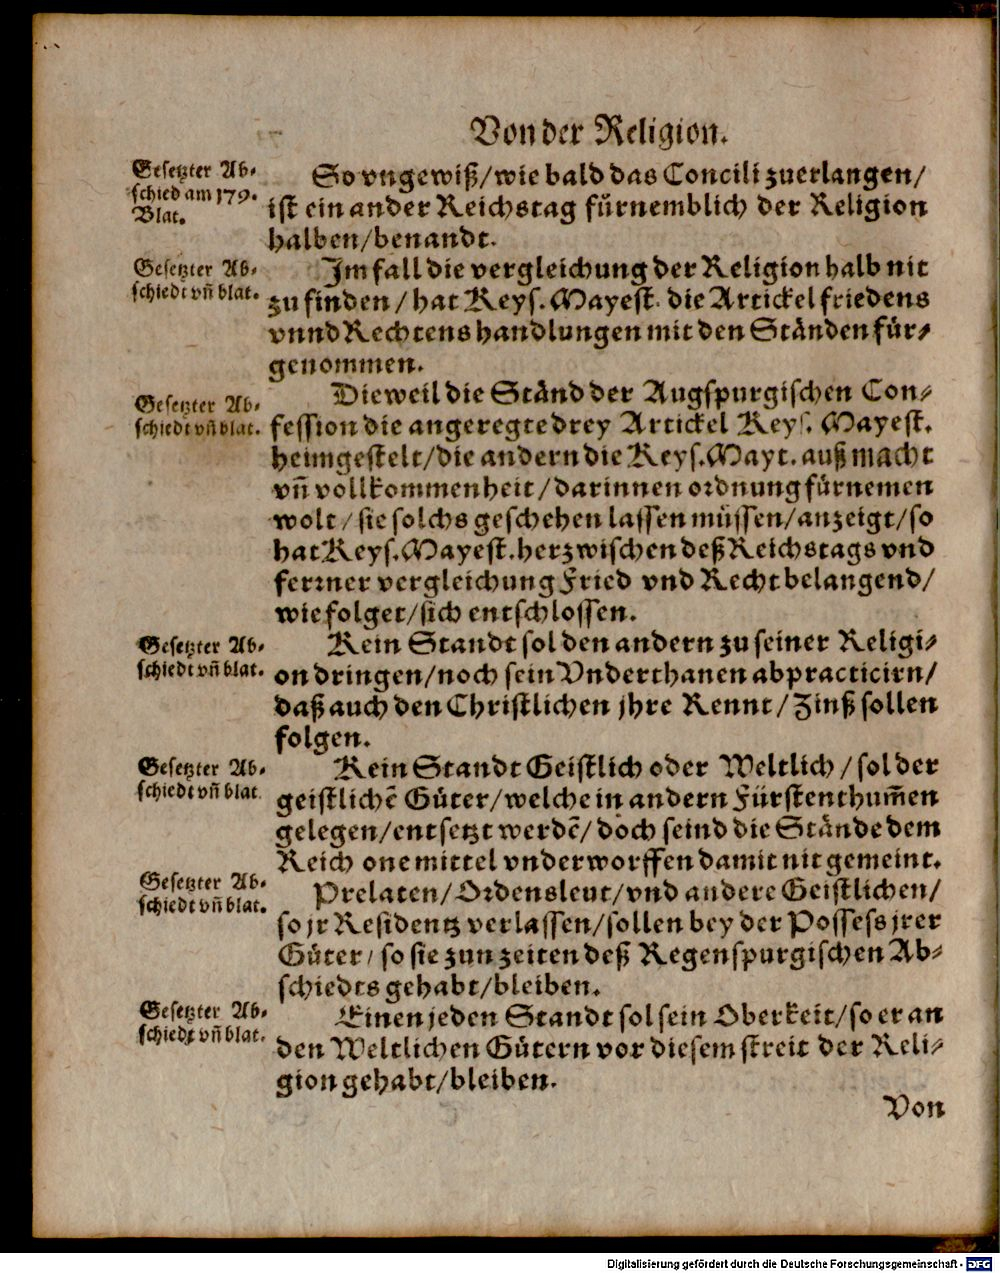 Von der Religion.
Gesetzter Ab-
schied am 179.
Blat.
So vngewiß/wie bald das Concili zuerlangen/
ist ein ander Reichstag fürnemblich der Religion
halben/benandt.
Gesetzter Ab-
schiedt vñ blat.
Im fall die vergleichung der Religion halb nit
zu finden/hat Keys. Mayest. die Artickel friedens
vnnd Rechtens handlungen mit den Ständen für-
genommen.
Gesetzter Ab-
schiedt vñ blat.
Dieweil die Ständ der Augspurgischen Con-
fession die angeregte drey Artickel Keys. Mayest.
heimgestelt/die andern die Keys. Mayt. auß macht
vñ vollkommenheit/darinnen ordnung fürnemen
wolt/sie solchs geschehen lassen müssen/anzeigt/so
hat Keys. Mayest. herzwischen deß Reichstags vnd
ferrner vergleichung Fried vnd Recht belangend/
wie folget/sich entschlossen.
Gesetzter Ab-
schiedt vñ blat.
Kein Standt sol den andern zu seiner Religi-
on dringen/noch sein Vnderthanen abpracticirn/
daß auch den Christlichen jhre Rennt/Zinß sollen
folgen.
Gesetzter Ab-
schiedt vñ blat
Kein Standt Geistlich oder Weltlich/sol der
geistlichẽ Güter/welche in andern Fürstenthum̃en
gelegen/entsetzt werdẽ/doch seind die Stände dem
Reich one mittel vnderworffen damit nit gemeint.
Gesetzter Ab-
schiedt vñ blat.
Prelaten/Ordensleut/vnd andere Geistlichen/
so jr Residentz verlassen/sollen bey der Possess jrer
Güter/so sie zun zeiten deß Regenspurgischen Ab-
schiedts gehabt/bleiben.
Gesetzter Ab-
schiedt vñ blat.
Einen jeden Standt sol sein Oberkeit/so er an
den Weltlichen Gütern vor diesem streit der Reli-
gion gehabt/bleiben.
Von
Digitalisierung gefördert durch die Deutsche Forschungsgemeinschaft - DFG